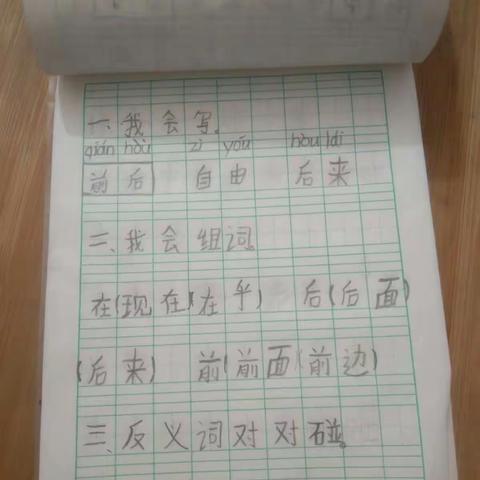 一、我会写。
qián hòu zì yóu hòu lái
前后 自由 后来
二、我会组词。
在(现在)(在乎) 后(后面)
(后来) 前(前面)(前边)
三、反义词对对碰。